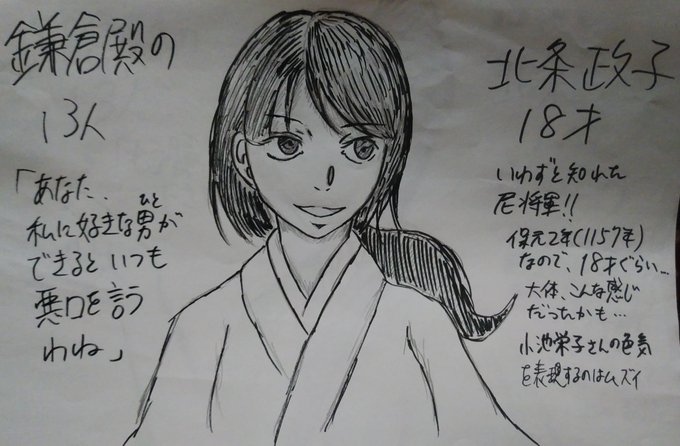 鎌倉殿の
13人
「あなた、
私に好きな男が
ひと
できるといつも
悪口を言う
わね」
北条政子
18才
いわずと知れた
尼将軍!!
保元2年(1157年)
なので、18才ぐらい…
大体、こんな感じ
だったかも…
小池栄子さんの色気
を表現するのはムズイ